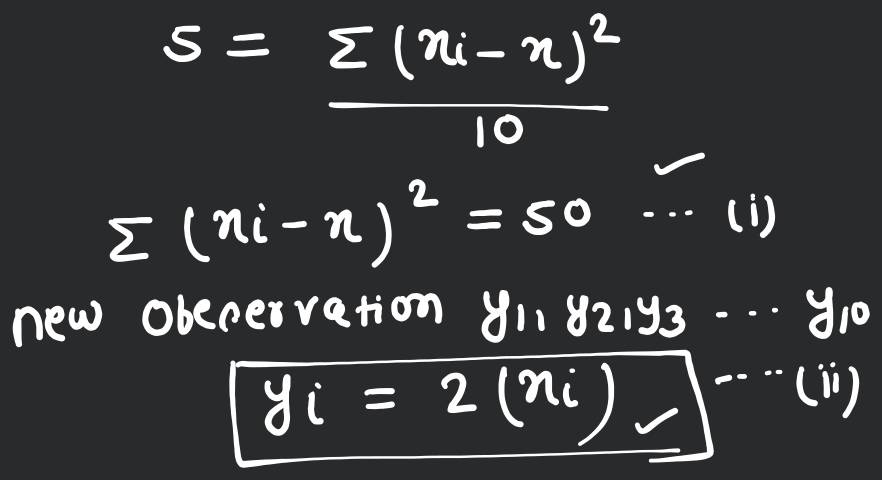 5 = Σ (xi - x)²
10
Σ (xi - x)² = 50 ... (i)
new obecervation y1, y2, y3 ... y10
yi = 2 (xi) .... (ii)